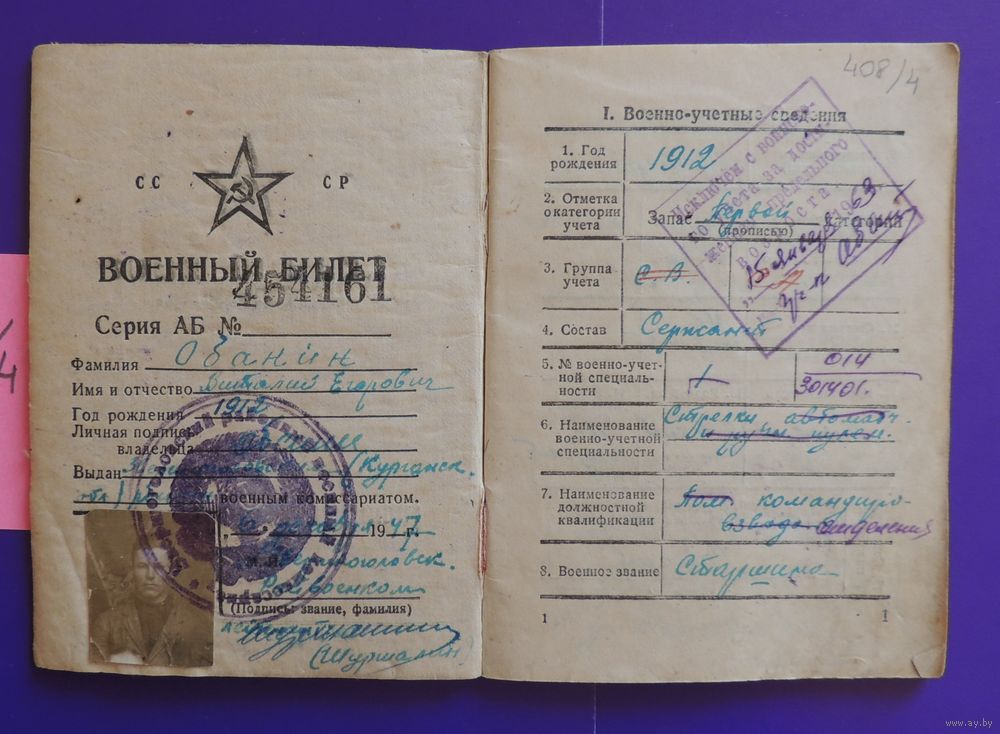 СС СР
ВОЕННЫЙ БИЛЕТ
454161
Серия АБ №
Фамилия Обанин
Имя и отчество Виталий Егорович
Год рождения 1912
Личная подпись
владельца
Выдан (Курганск.
обл.) военным комиссариатом.
47 19 г.
М. П.
Райвоенком
(Подпись, звание, фамилия)
408/4
I. Военно-учетные сведения
1. Год рождения 1912
2. Отметка о категории учета Запас первой категории
(прописью)
3. Группа учета С.В.
4. Состав Сержант
5. № военно-учетной специальности 1 014
301401.
6. Наименование военно-учетной специальности Стрелки автомат.
и ручн. пулем.
7. Наименование должностной квалификации Пом. командир
взвода отделения
8. Военное звание Старшина
Исключен с воинско-
го учета за дости-
жением предельного
возраста
15 января 1963
1 1
www.ay.by